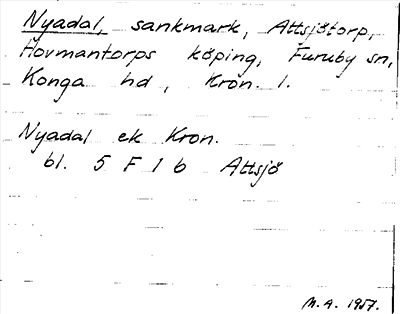 Nyadal, sankmark, Attsjötorp,
Hovmantorps köping, Furuby sn,
Konga hd, Kron. l.
Nyadal ek Kron.
bl. 5 F 1 b Attsjö
M.A. 1957.